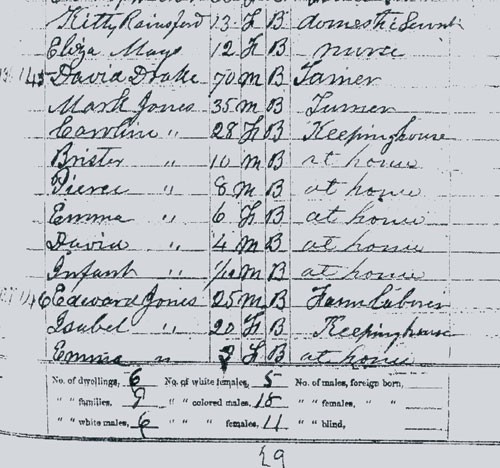 Kitty Rainsford 13 F B domestic Servt
Eliza Mays 12 F B nurse
145 David Drake 70 M B Farmer
Mark Jones 35 M B Farmer
Caroline " 28 F B Keeping house
Brister " 10 M B at home
Pierce " 8 M B at home
Emma " 6 F B at home
David " 4 M B at home
Infant " M B at home
146 Edward Jones 25 M B Farm laborer
Isabel " 20 F B Keeping house
Emma " 3 F B at home
No. of dwellings, 6 No. of white females, 5 No. of males, foreign born,
" " families, 9 " " colored males, 18 " " females, " "
" " white males, 6 " " " females, 11 " " blind,